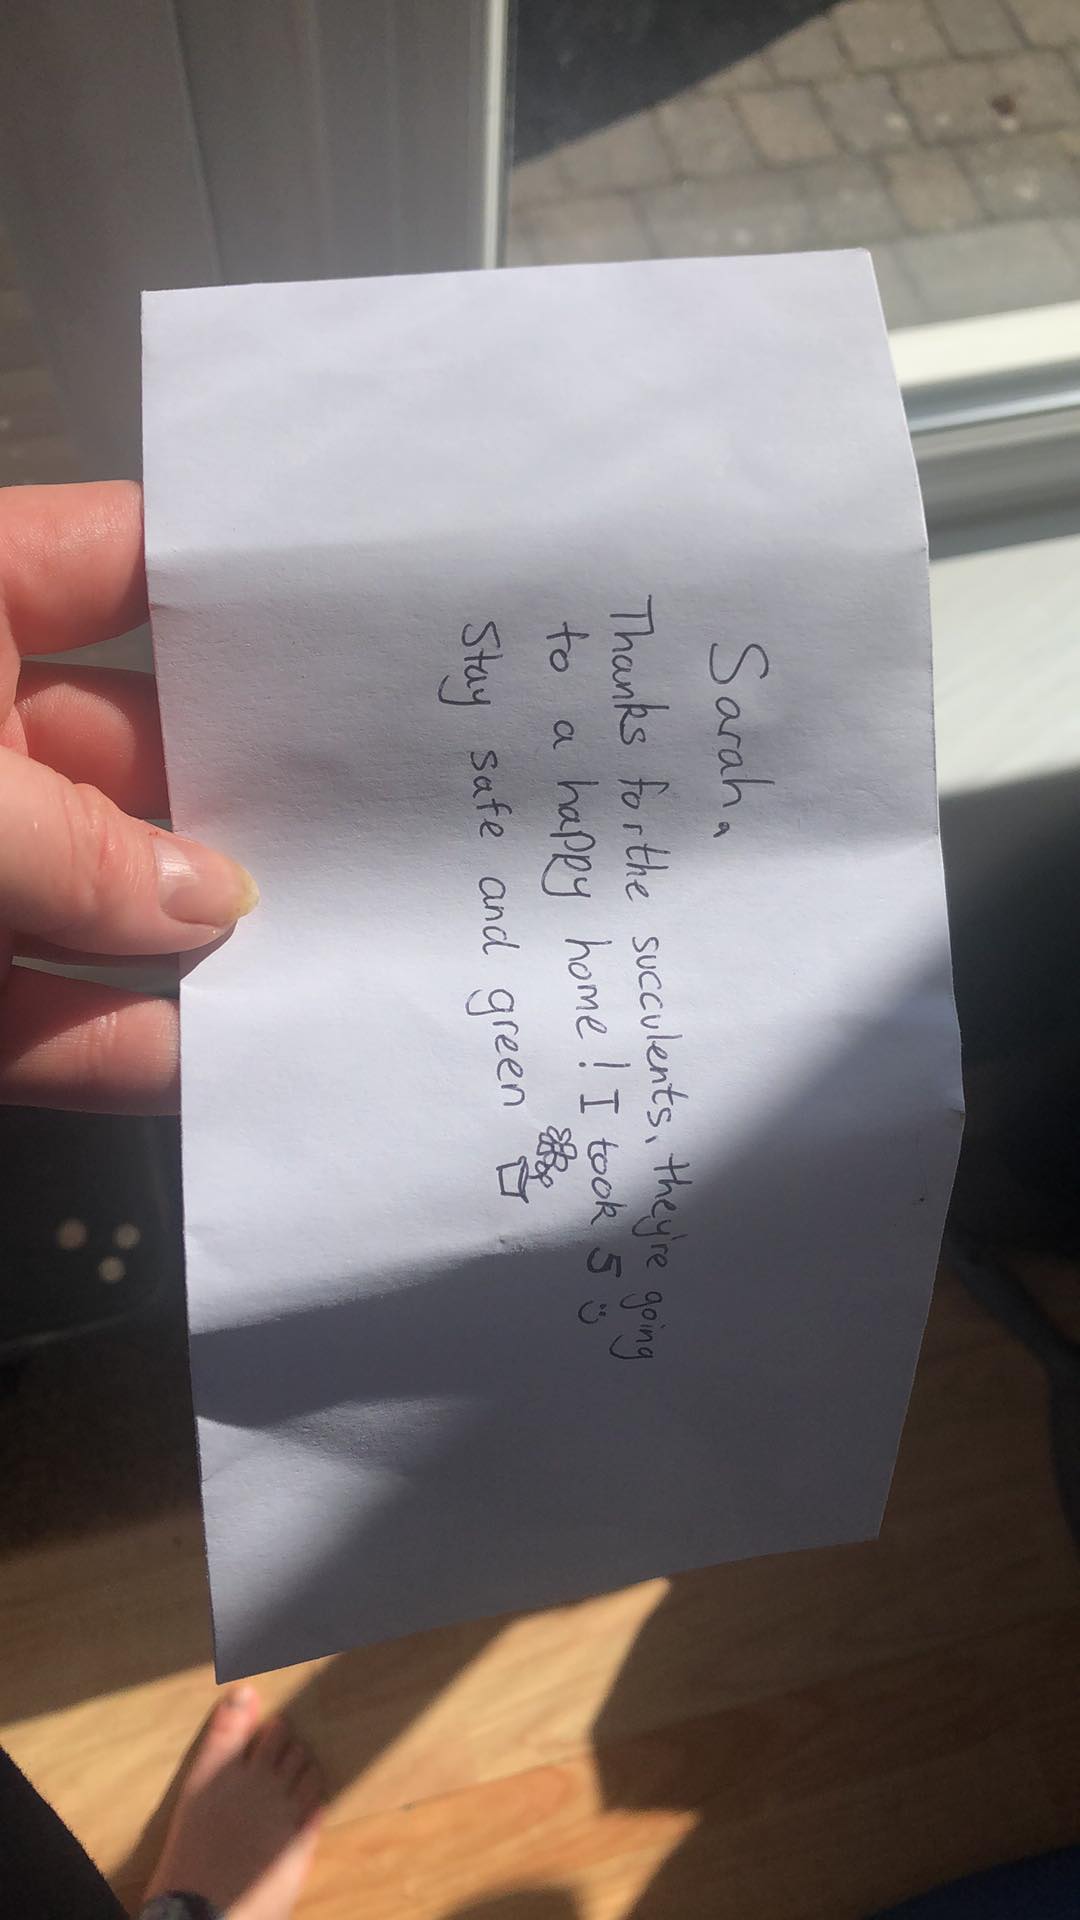 Sarah,
Thanks for the succulents, they're going
to a happy home! I took 5 :)
Stay safe and green